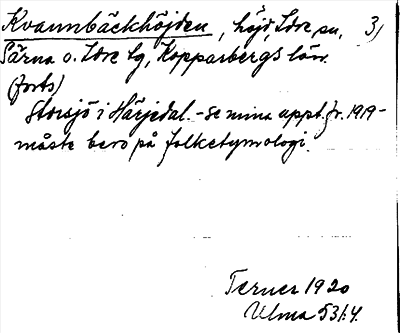 Kvannbäckhöjden, höjd, Idre sn, 3)
Särna o. Idre tg, Kopparbergs län.
(forts)
Storsjö i Härjedal. - se mina uppt. fr. 1919 -
måste bero på folketymologi.
Terner 1920
Ulma 53:4.